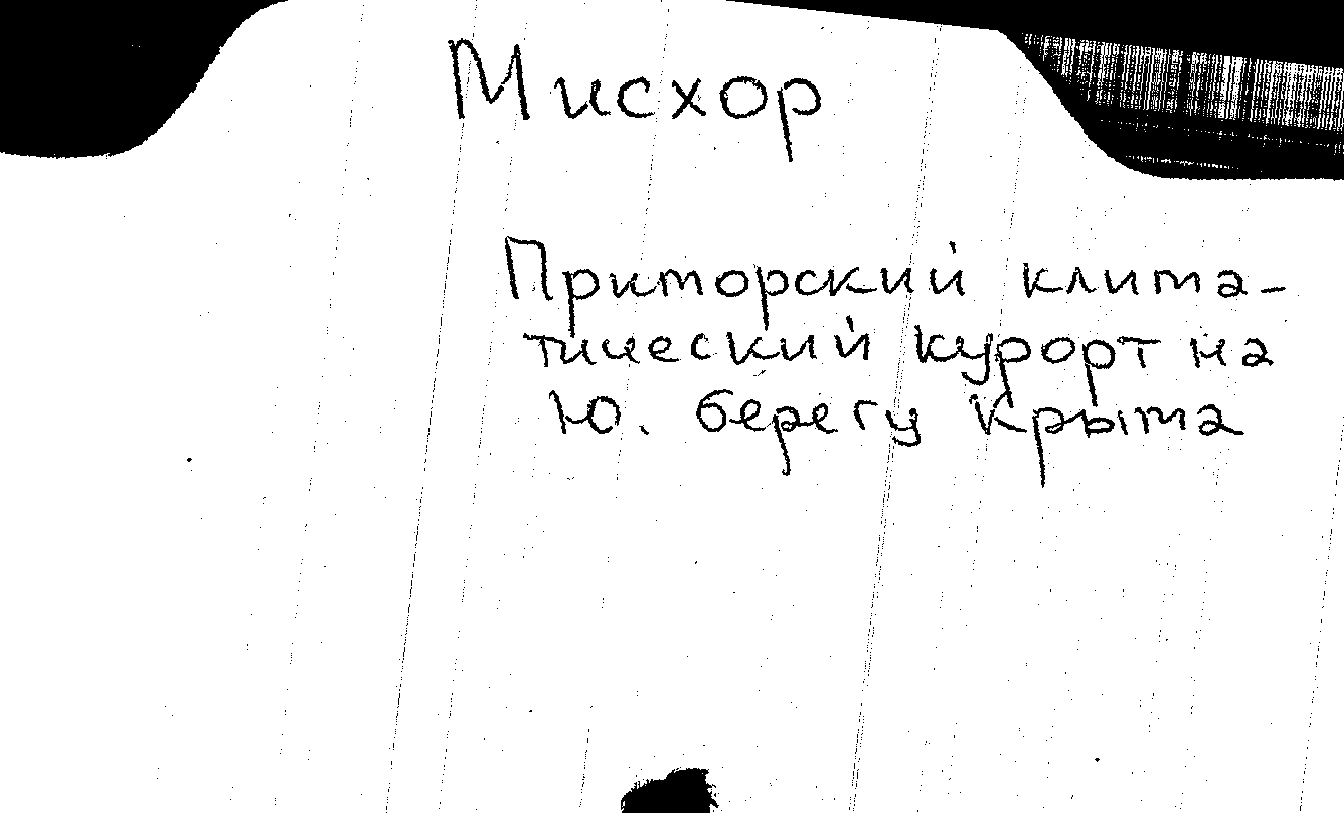 Мисхор
Приморский клима-
тический курорт на
Ю. берегу Крыма